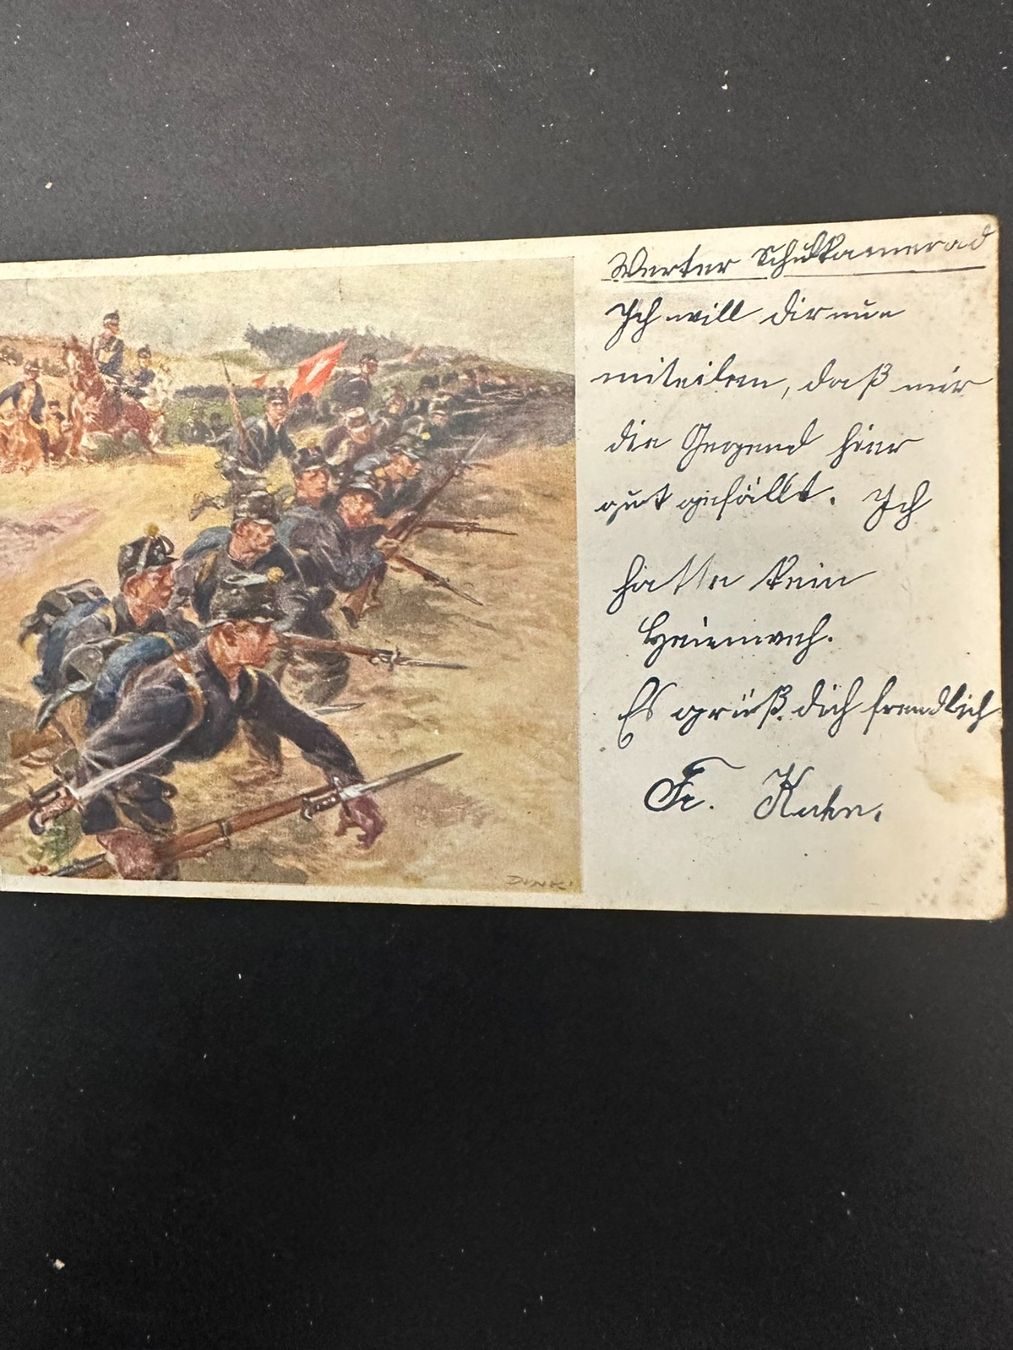 Werter Schulkamerad
Ich will dir nun
miteilen, daß mir
die Gegend hier
gut gefällt. Ich
hatte kein
Heiemweh.
Es grüß. dich freundlich
Fr. Kuhn.